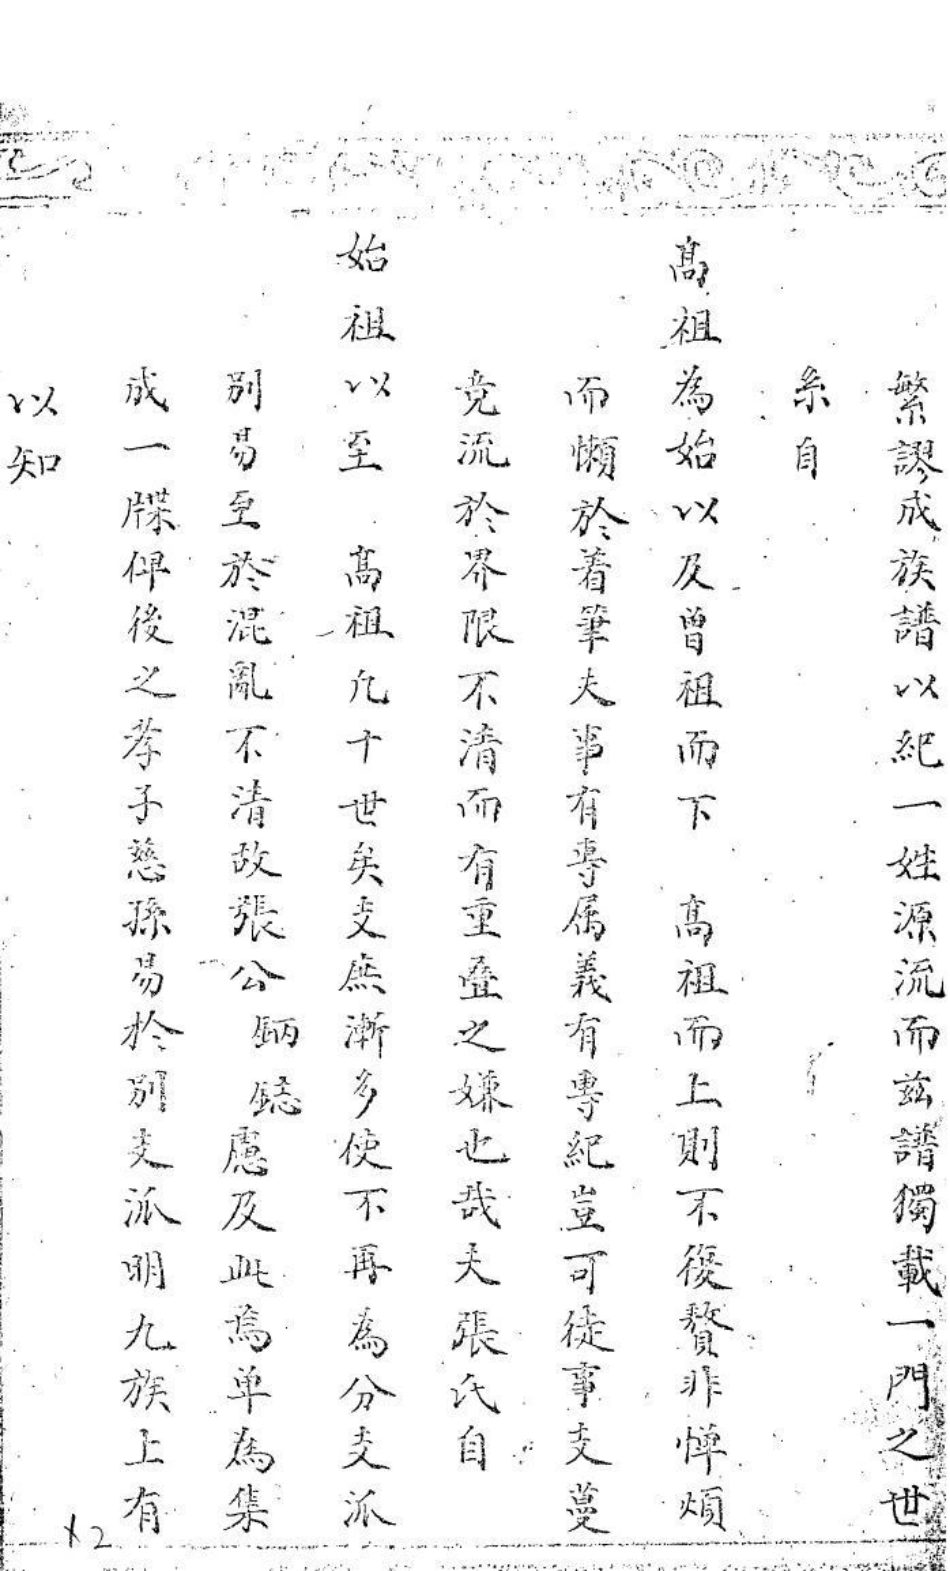 繁謬成族譜以紀一姓源流而茲譜獨載一門之世
系自
高祖為始以及曾祖而下 高祖而上則不復贅非憚煩
而懶於着筆夫事有專属義有專紀豈可徒事支蔓
竞流於界限不清而有重疊之嫌也哉夫張氏自
始祖以至 高祖凢十世矣支庶漸多使不再為分支派
別易至於混亂不清故張公 鈵 鋕慮及此焉单為集
成一牒俾後之孝子慈孫易扵別支派明九族上有
以知
x2